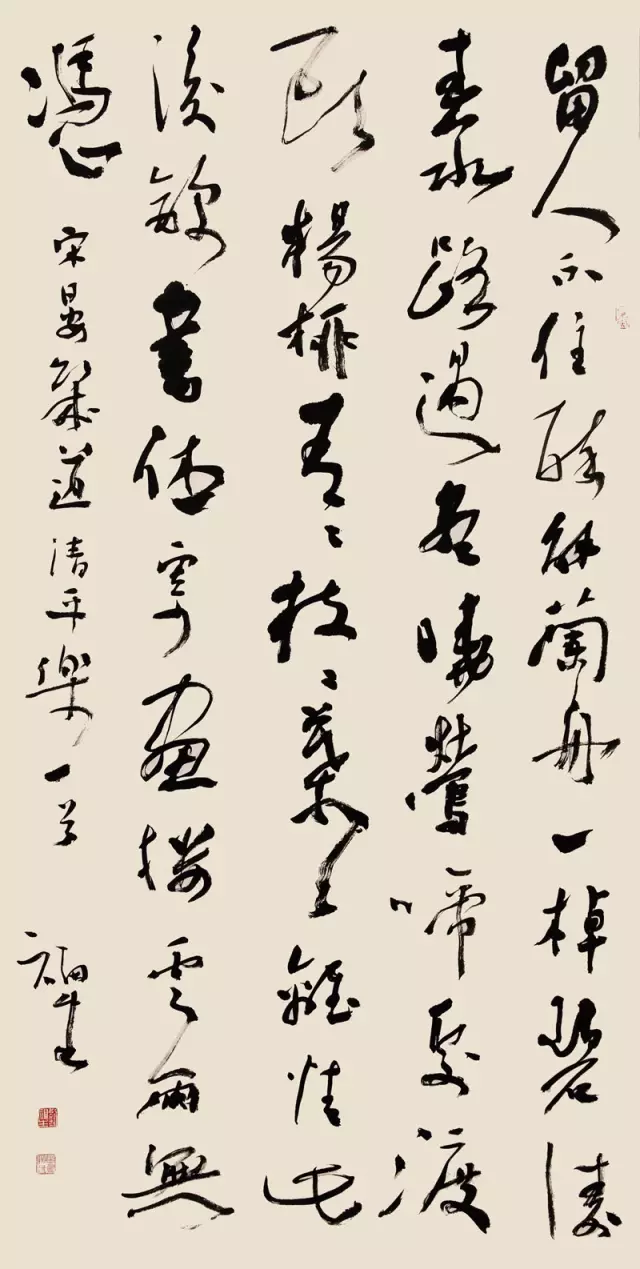 留人不住醉解蘭舟一棹碧濤
春水路過盡曉鶯啼處渡
頭楊柳青〻枝〻葉〻離情此
後錦書休寄畫樓雲雨無
憑 宋晏幾道清平樂一首